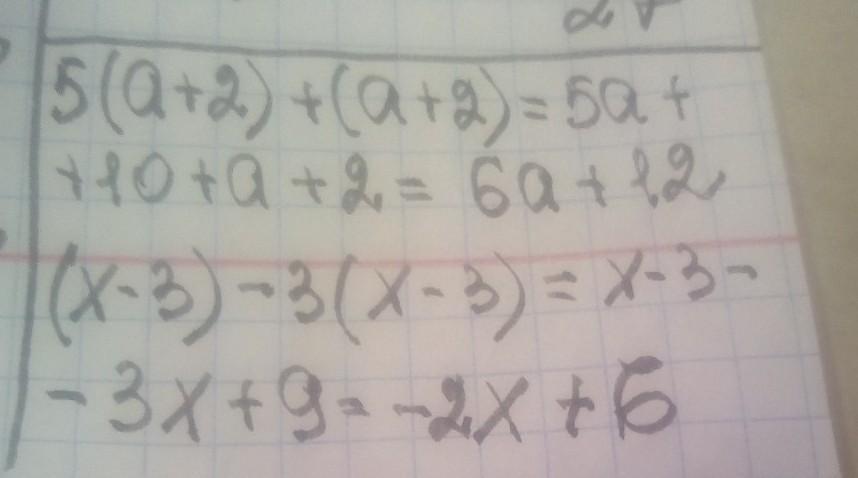 5(a+2)+(a+2)=5a+
+10+a+2=6a+12
(x-3)-3(x-3)=x-3-
-3x+9=-2x+6